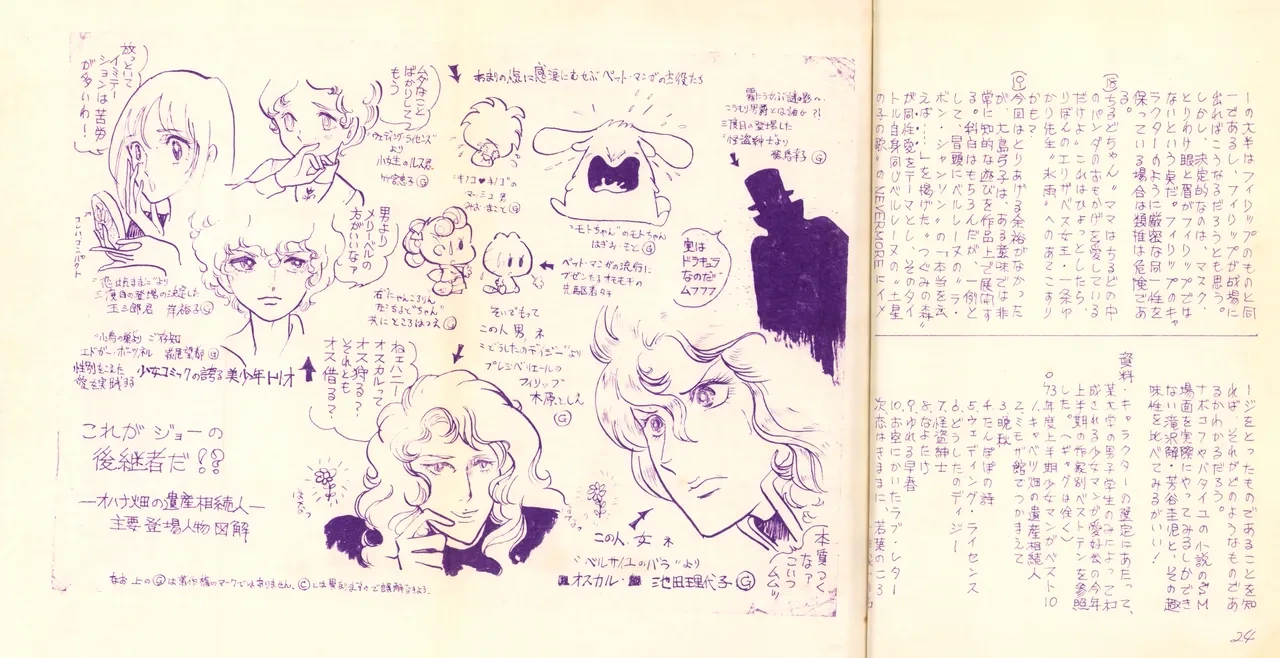 ーの大半はフィリップのものと同
一であるし、フィリップが成場に
出ればこうなるだろうとも思う。
しかし、決定的なのは、マスク、
とりわけ眼と眉がフィリップでは
ないという点だ。フィリップのキャ
ラクターのように厳密な同一性を
保っている場合は類推は危険であ
る。
⑱ちるどちゃん。ママはちるどの中
のパンダのおもかげを愛している
だけよ。これはひょっとしたら、
りぼんのエリザベス女王・一条ゆ
かり先生〝氷雨〟へのあてこすり
かもネ。
⑲今回はとりあげる余裕がなかった
が、大島弓子は、ある意味では非
常に知的な遊びを作品上で展開す
る。科白はもちろんだが、一例と
して、冒頭にベルレーヌの〝ラ・
ボン・シャンソン〟の「本当を云
えば……」を掲げた〝つぐみの森〟
が同性愛をテーマとし、そのタイ
トル自身同じベルレーヌの〝土星
の子の歌〟のNEVERMOREにイメ
ージをとったものであることを知
れば、それがどのようなものであ
るかわかるだろう。
ナボコフやバタイユの小説のSM
場面を実際にやってみるしかでき
ない滝沢解・芳谷圭児と、その趣
味性を比べてみるがいい！
資料・キャラクターの選定にあたって、
某大学の男子学生のみによって構
成される少女マンガ愛好会の今年
上半期の作家別ベストテンを参照
した。(ギャグは除く)
○73年度上半期少女マンガベスト10
1.キャベツ畑の遺産相続人
2.ミモザ館でつかまえて
3.晩秋
4.たんぽぽの詩
5.ウェディング・ライセンス
6.どうしたのデイジー
7.怪盗紳士
8.なよたけ
9.ゆれる早春
10.お空にかいたラブ・レター
次点はきままに、若葉のころ
24
放っといて
イミテー
ションは苦労
が多いわ！
コンパクト
〝恋はきままに〟より
三度目の登場の決定した
玉三郎君 岸裕子Ⓖ
ムダなこと
ばかりして
もう
〝ウェディング・ライセンス〟
より
小女生のルス君
竹宮恵子Ⓖ
男より
メリーベルの
方がいいなァ
〝小鳥の巣〟より ご存知
エドガー・ポーツネル 萩尾望都Ⓖ
性別をこえた
愛を実践する
少女コミックの誇る美少年トリオ
あまりの傷に感涙にむせぶペット・マンガの主役たち
〝キノコ♥キノコ〟の
マッシュ君
みを・まことⒼ
〝モトちゃん〟のモトちゃん
はぎお・もとⒼ
右〝にゃんころりん〟
左〝ちるど〟ちゃん
共にところはつえⒼ
ペット・マンガの流行に
先駆者タチ
霧にうかぶ謎の影へ
こうもり男爵とは誰か?!
三度目の登場した
〝怪盗紳士〟より
Ⓖ
実は
ドラキュラ
なのだ
ムフフフ
そいでもって
この人、男、ネ
〝どうしたのデイジー〟より
プレシ・ベリエールの
フィリップ
木原としえ
Ⓖ
ねェハニー
オスカルって
オス狩る？
それとも
オス借る？
これがジョーの
後継者だ⁇
—オハナ畑の遺産相続人—
主要登場人物図解
この人、女、ネ
〝ベルサイユのバラ〟より
オスカル・ 池田理代子Ⓖ
本質つく
なァ
こいつ
ムムッ
なお 上のⒼは著作権のマークではありません。Ⓒとは異なりますので誤解なきよう。